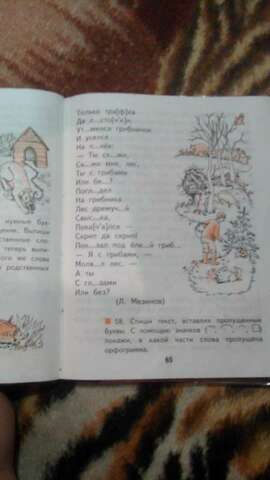 нужные бук-
Выпиши
ственные сло-
теперь выпи-
же слова
родственных
Только тря[ф]ка...
Да с...сто[ч'к]и,
Ут...мился грибничок
И уселся
На с...нёк:
— Ты ск...жи,
Ск...жи мне, лес,
Ты с грибами
Или бе...?
Погл...дел
На грибника
Лес дремуч...й
Свыс...ка,
Пока[ч']лся —
Скрип да скрип!
Поп...зал под ёлк...й гриб...
— Я с грибами, —
Молв...л лес, —
А ты
С гл...зами
Или без?
(Л. Мезинов)
58. Спиши текст, вставляя пропущенные
буквы. С помощью значков
покажи, в какой части слова пропущена
орфограмма.
65